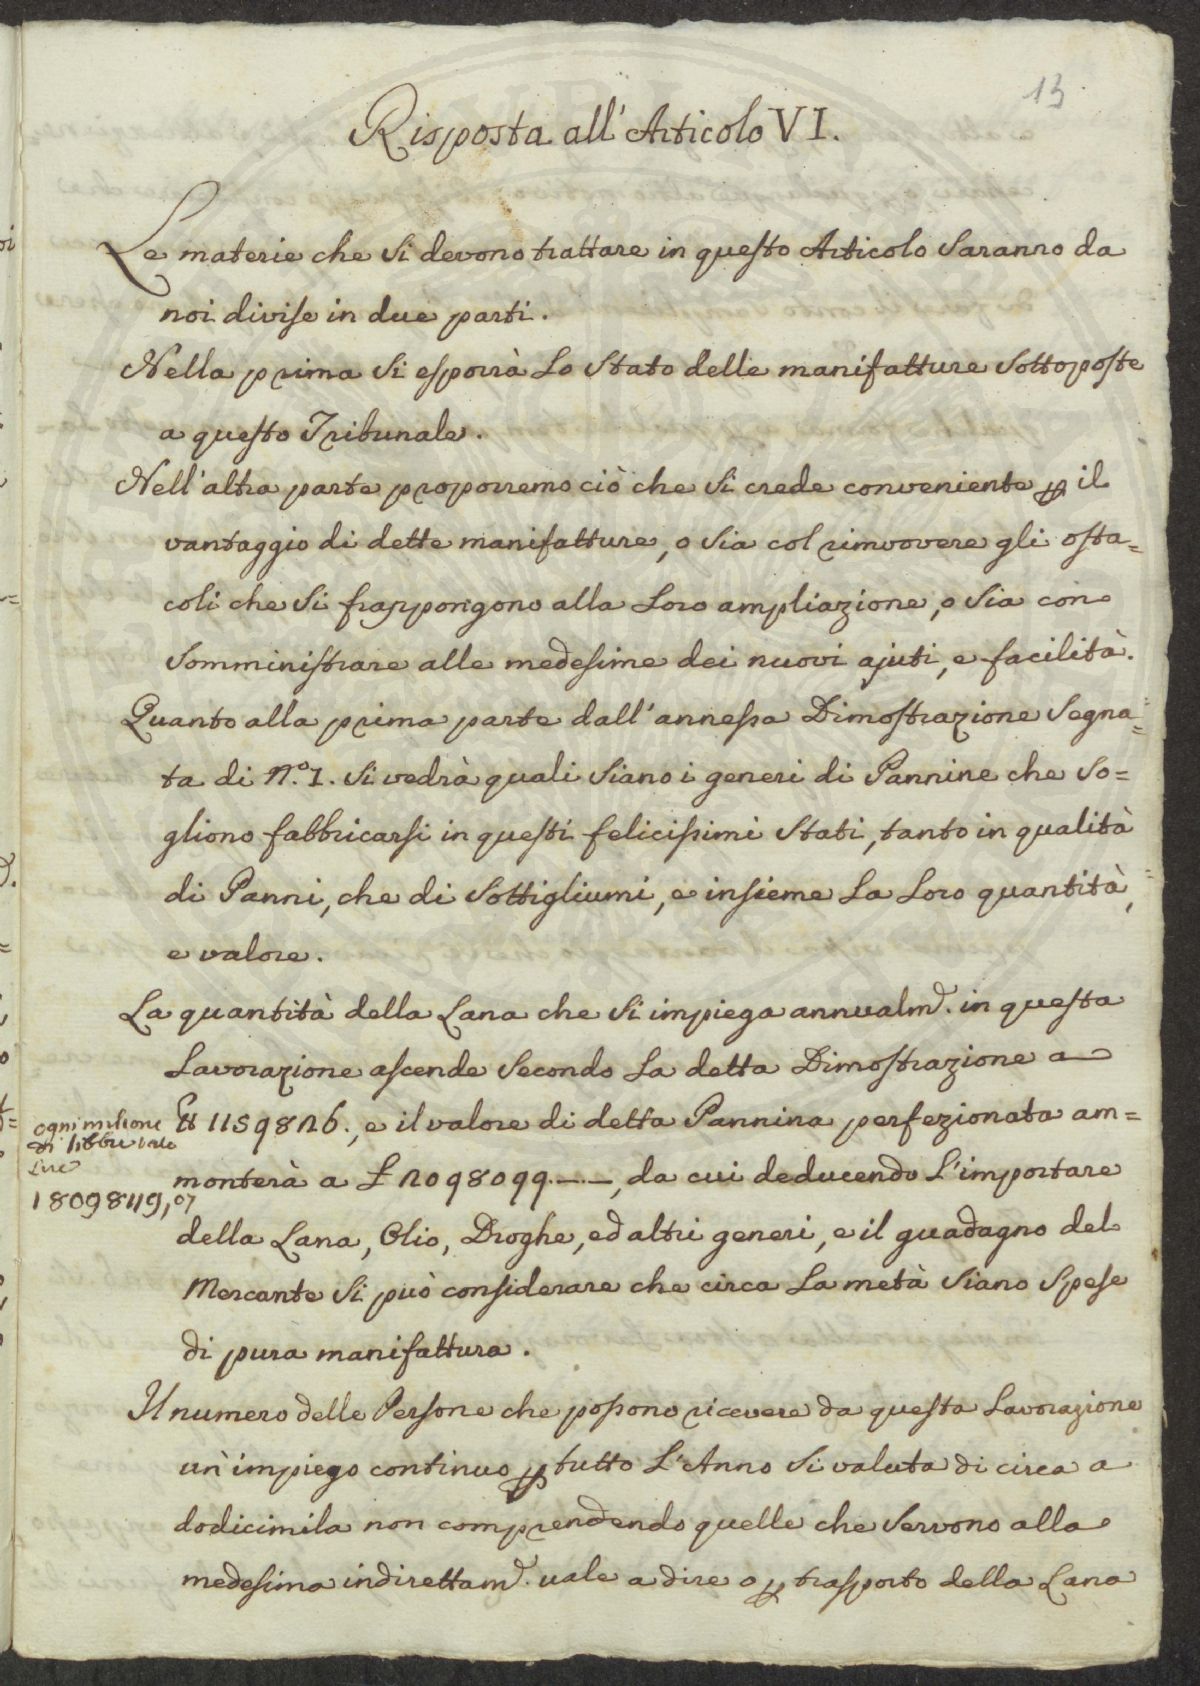 13
Risposta all' Articolo VI.
Le materie che si devono trattare in questo Articolo saranno da
noi divise in due parti.
Nella prima si esporrà lo stato delle manifatture sottoposte
a questo Tribunale.
Nell'altra parte proporremo ciò che si crede conveniente p il
vantaggio di dette manifatture, o sia col rimuovere gli osta=
coli che si frappongono alla loro ampliazione, o sia con
somministrare alle medesime dei nuovi ajuti, e facilità.
Quanto alla prima parte dall'annessa Dimostrazione segna=
ta di N.º 1. si vedrà quali siano i generi di Pannine che so=
gliono fabbricarsi in questi felicissimi Stati, tanto in qualità
di Panni, che di Sottigliumi, e insieme la loro quantità,
e valore.
La quantità della Lana che si impiega annualm.e in questa
Lavorazione ascende secondo la detta Dimostrazione a
, e il valore di detta Pannina perfezionata am=
monterà a £ 2098099.--, da cui deducendo l'importare
della Lana, Olio, Droghe, ed altri generi, e il guadagno del
Mercante si può considerare che circa la metà siano spese
di pura manifattura.
Il numero delle Persone che possono ricevere da questa Lavorazione
un'impiego continuo p tutto l'Anno si valuta di circa a
dodicimila non comprendendo quelle che servono alla
medesima indirettam.e vale a dire o p trasporto della Lana
ogni milione
di libbre vale
Lire
1809849,07